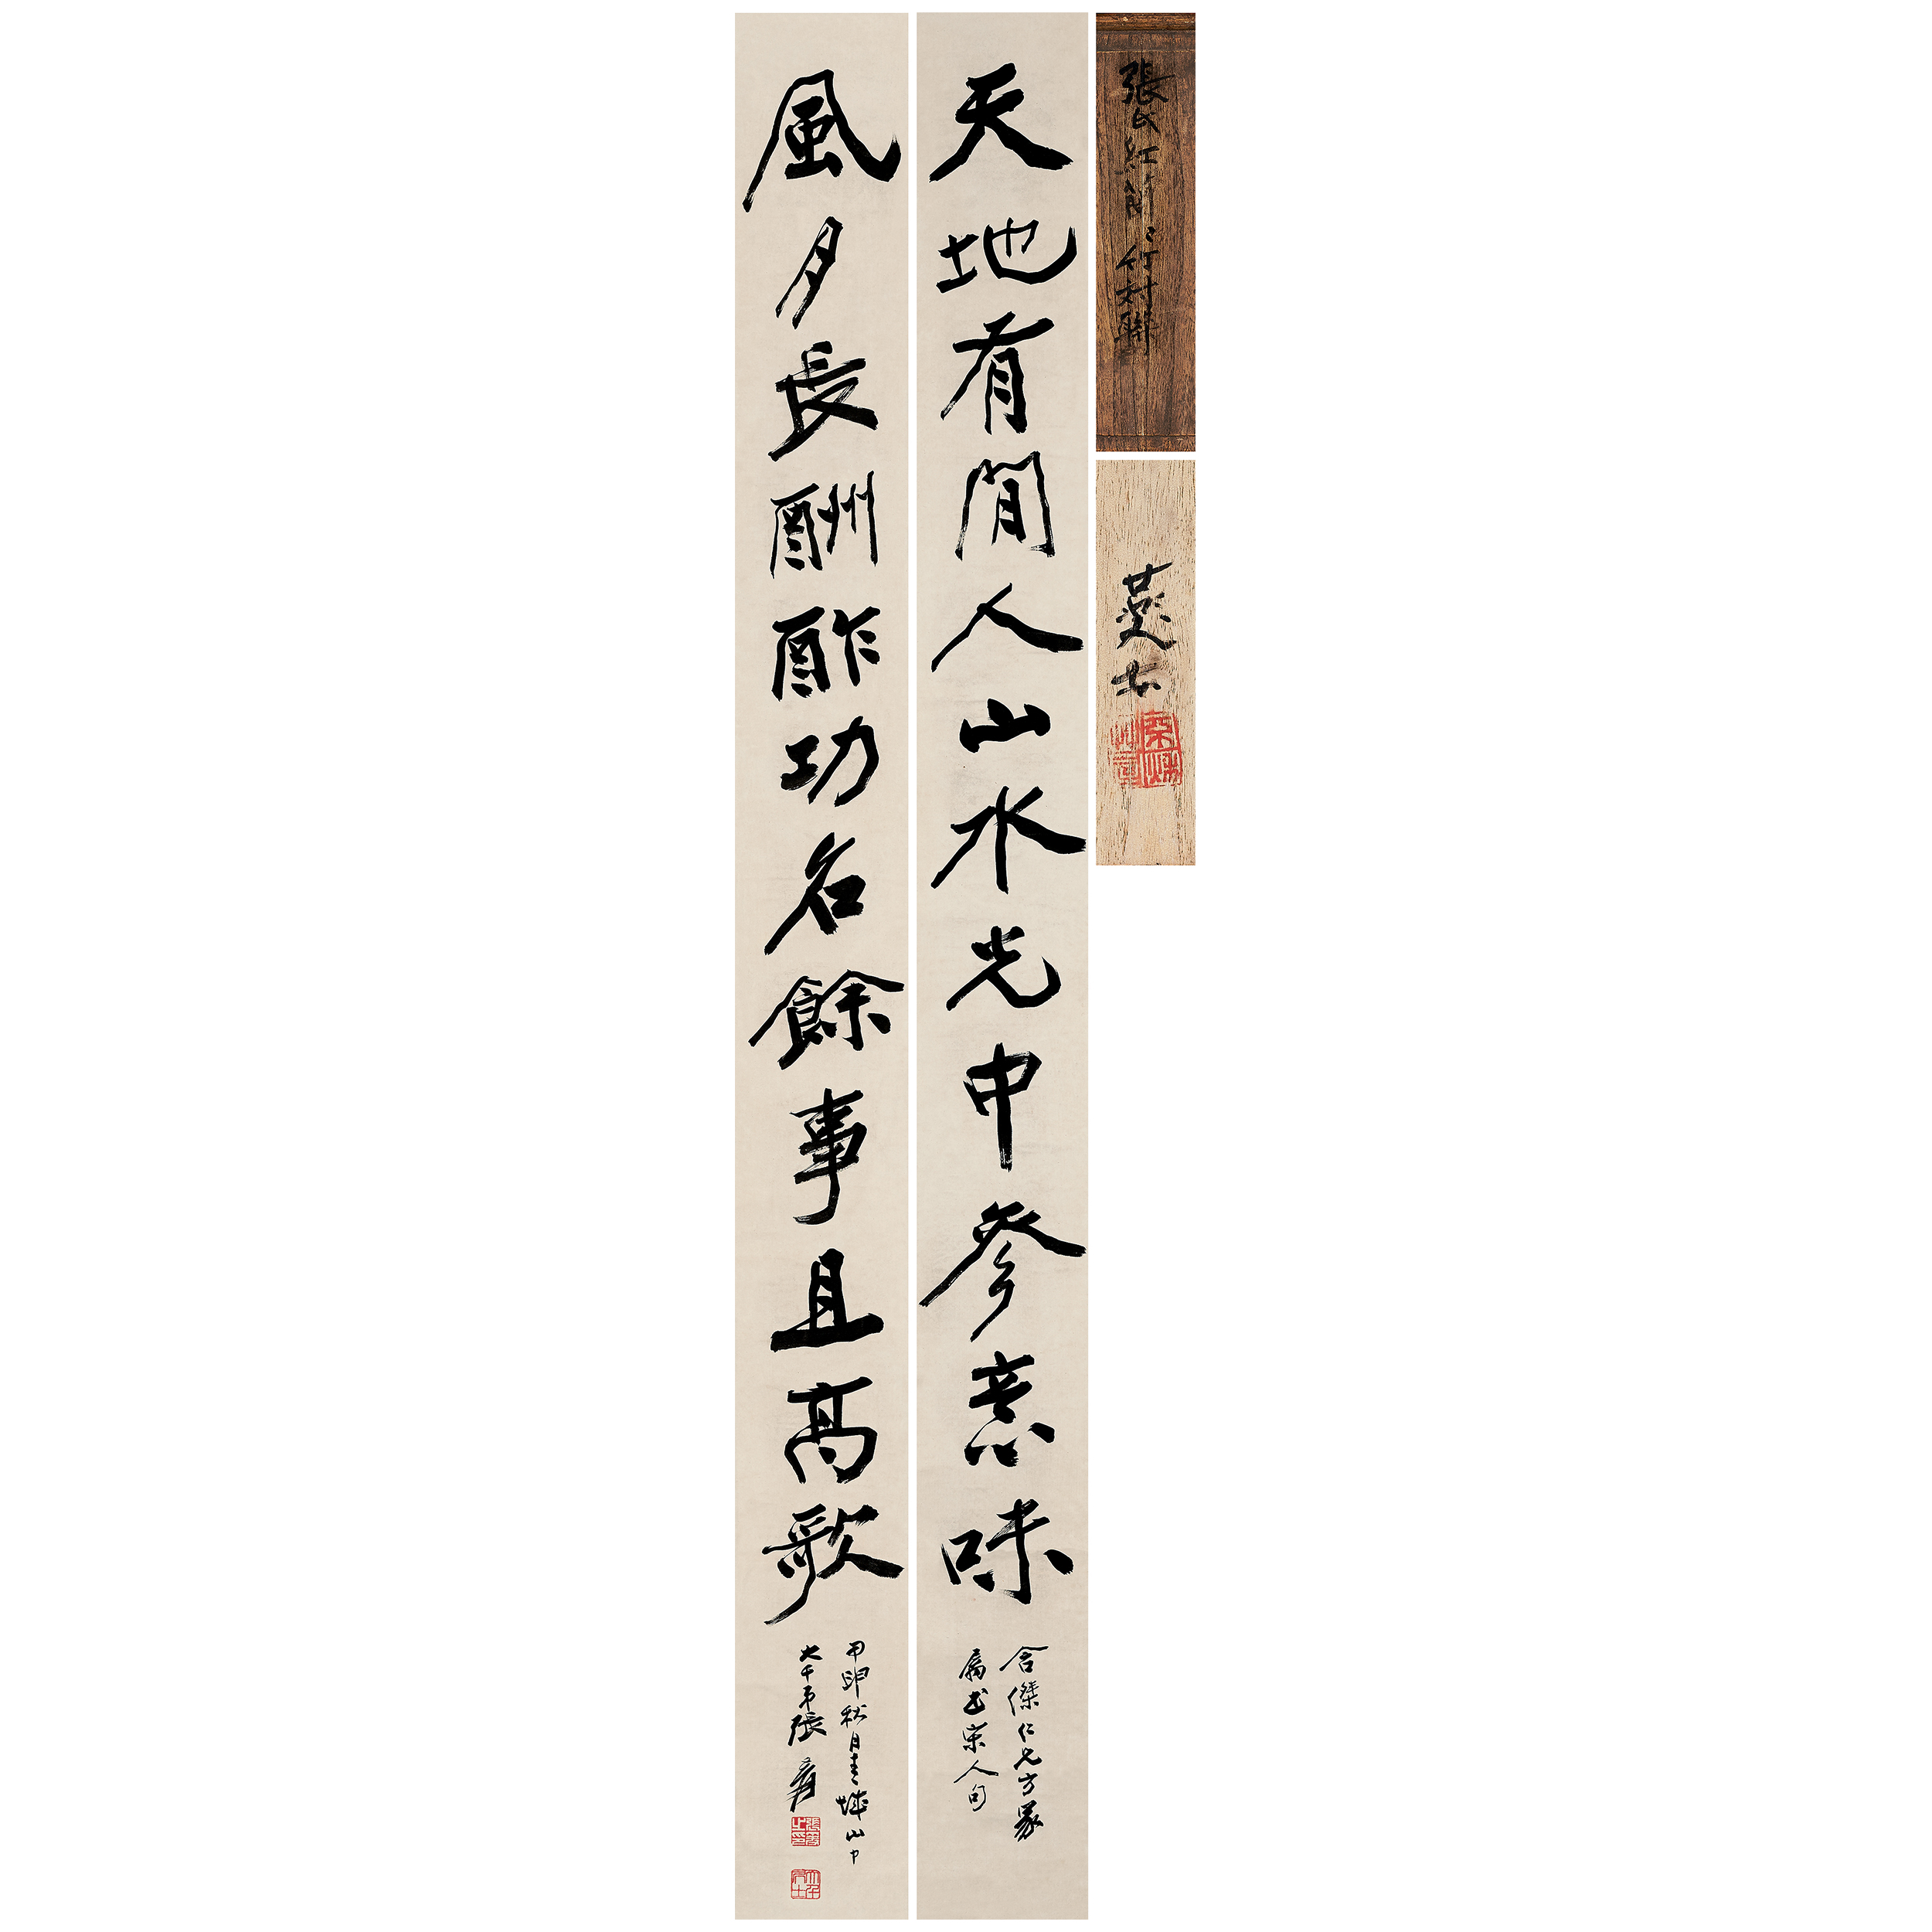 張氏紅
行対聯
天地有閒人山水光中參意味
合傑仁兄方家
屬書宋人句
風月長酬酢功名餘事且高歌
甲申秋日青城山中
大千弟張爰
張爰之印
大千居士